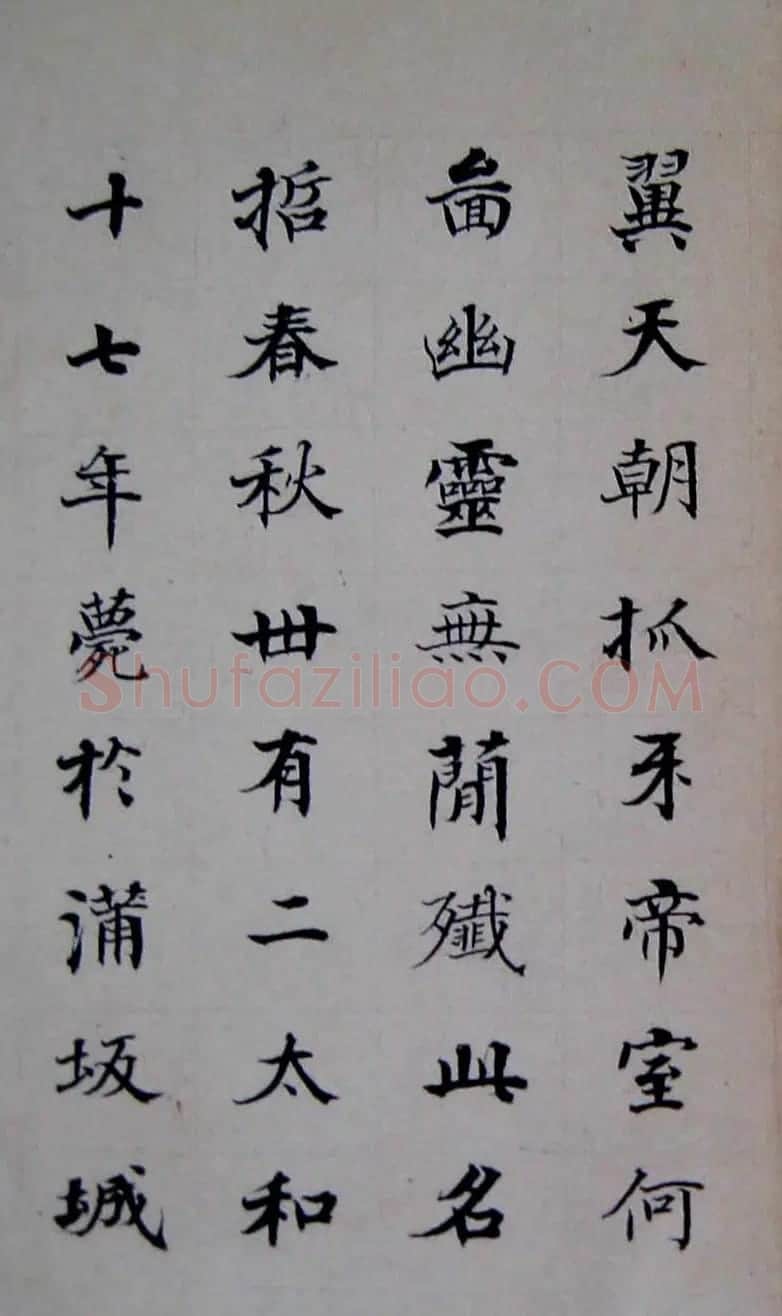 翼天朝抓牙帝室何
啚幽靈無簡殲此名
哲春秋卌有二太和
十七年薨於蒲坂城
Shufaziliao.COM